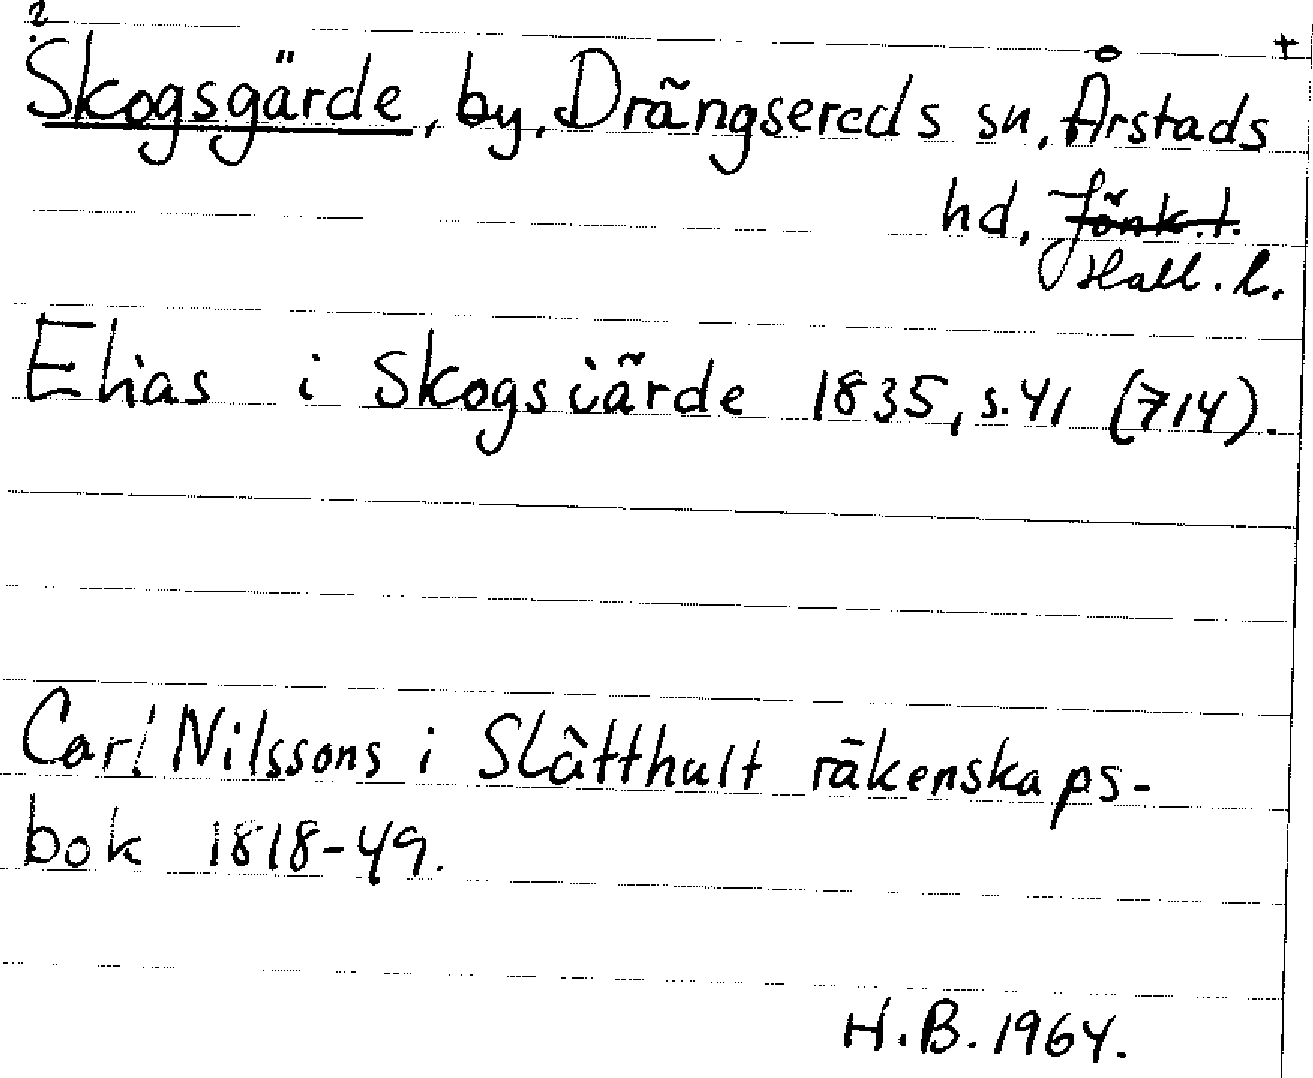 ?
+
Skogsgärde, by, Drängsereds sn, Årstads
hd, Jönk.l.
Hall. l.
Elias i Skogsiärde 1835, s.41 (714).
Carl Nilssons i Slätthult räkenskaps-
bok 1818-49.
H.B. 1964.